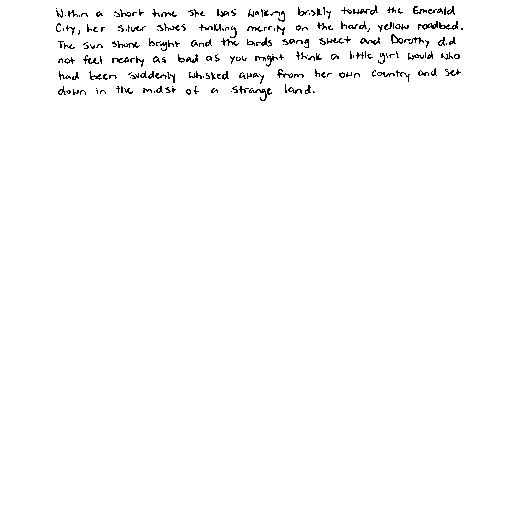 Within a short time she was walking briskly toward the Emerald
City, her silver shoes tinkling merrily on the hard, yellow roadbed.
The sun shone bright and the birds sang sweet and Dorothy did
not feel nearly as bad as you might think a little girl would who
had been suddenly whisked away from her own country and set
down in the midst of a strange land.